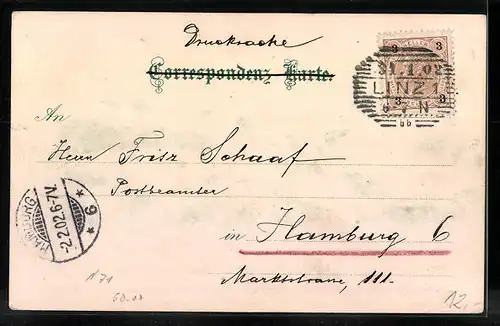 Drucksache
Correspondenz-Karte
3 3
31.1.02
LINZ 1
3 3
6-7 N
6b
An
Herrn Fritz Schaaf
Postbeamter
in Hamburg 6
Marktstrasse, 111.
HAMBURG
-2.2.02.6-7N.
* 6 *
N 71
12,-